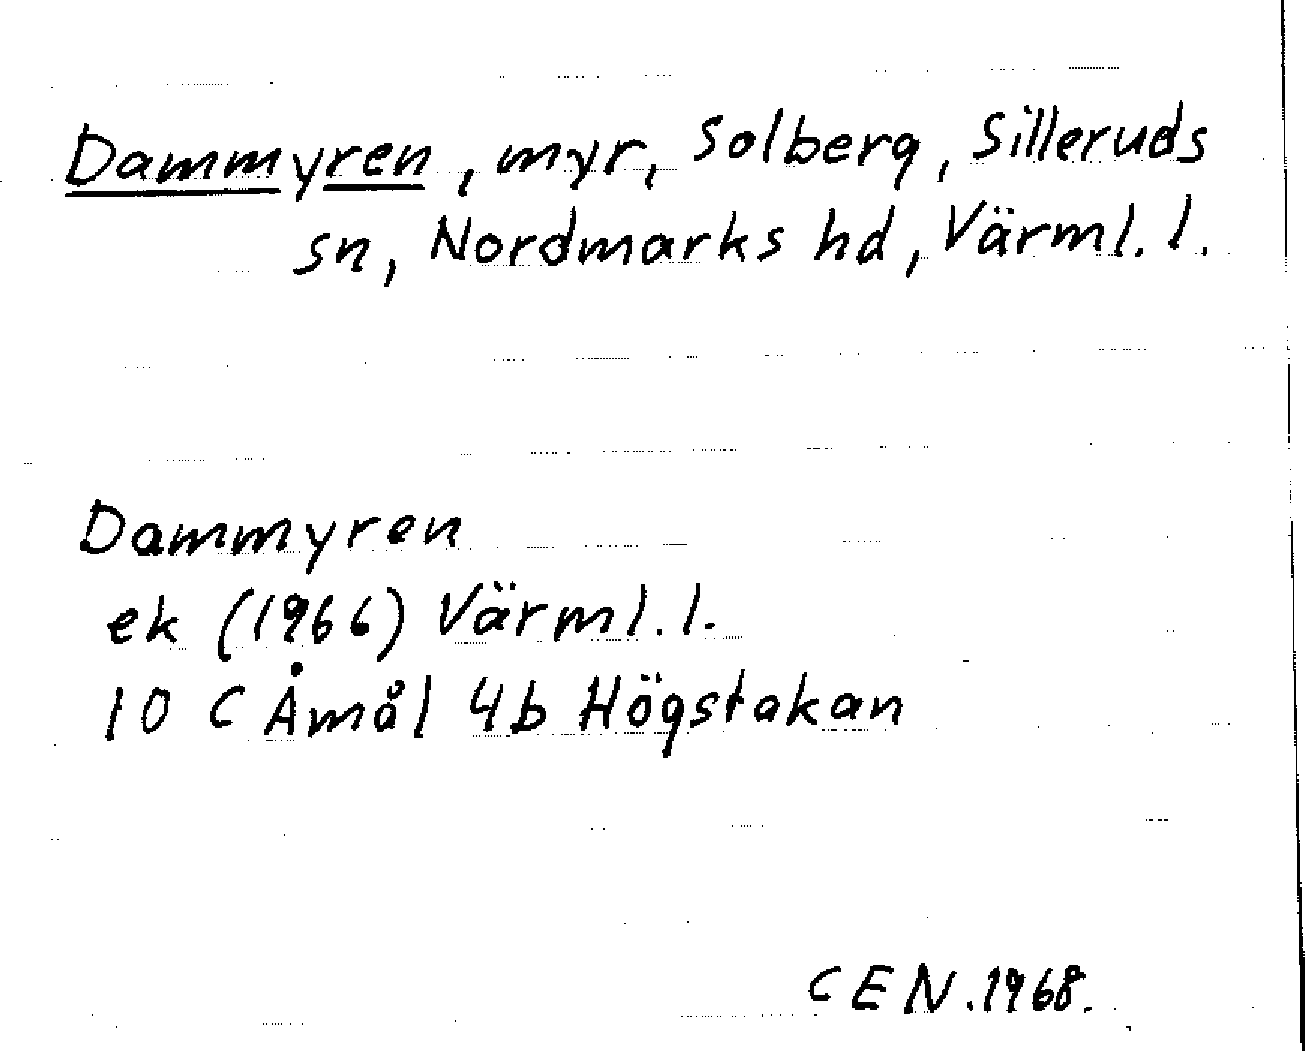 Dammyren, myr, Solberg, Silleruds
sn, Nordmarks hd, Värml. l.
Dammyren
ek (1966) Värml. l.
10 C Åmål 4b Högstakan
CEN. 1968.